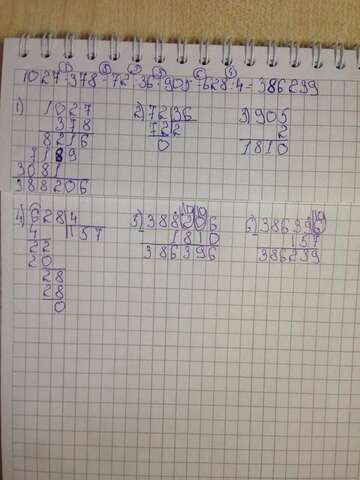 1027·378-72:36·905-628:4=386239
1) 1027
378
8216
7189
3081
388206
2) 72 36
72 2
0
3) 905
2
1810
4) 628 4
4 157
22
20
28
28
0
5) 388206
1810
386396
6) 386396
157
386239